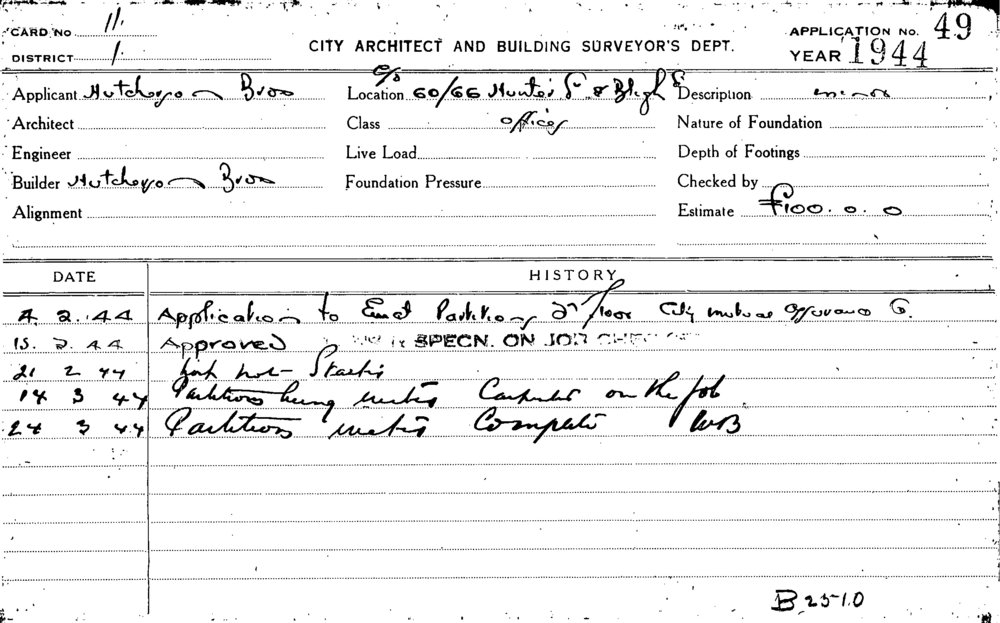 CARD No 11.
DISTRICT 1.
CITY ARCHITECT AND BUILDING SURVEYOR'S DEPT.
APPLICATION No. 49
YEAR 1944
Applicant Hutcherson Bros
Location c/s 60/66 Hunter St. & Bligh St
Description minor
Architect
Class offices
Nature of Foundation
Engineer
Live Load
Depth of Footings
Builder Hutcherson Bros
Foundation Pressure
Checked by
Alignment
Estimate £100.0.0
DATE HISTORY
4. 2. 44 Application to Erect Partitions 2nd floor City mutual assurance Co.
15. 2. 44 Approved SPECN. ON JOB
21 2 44 Job not Started
14 3 44 Partitions being erected Carpenter on the job
24 3 44 Partitions erected Complete WB
B 2510